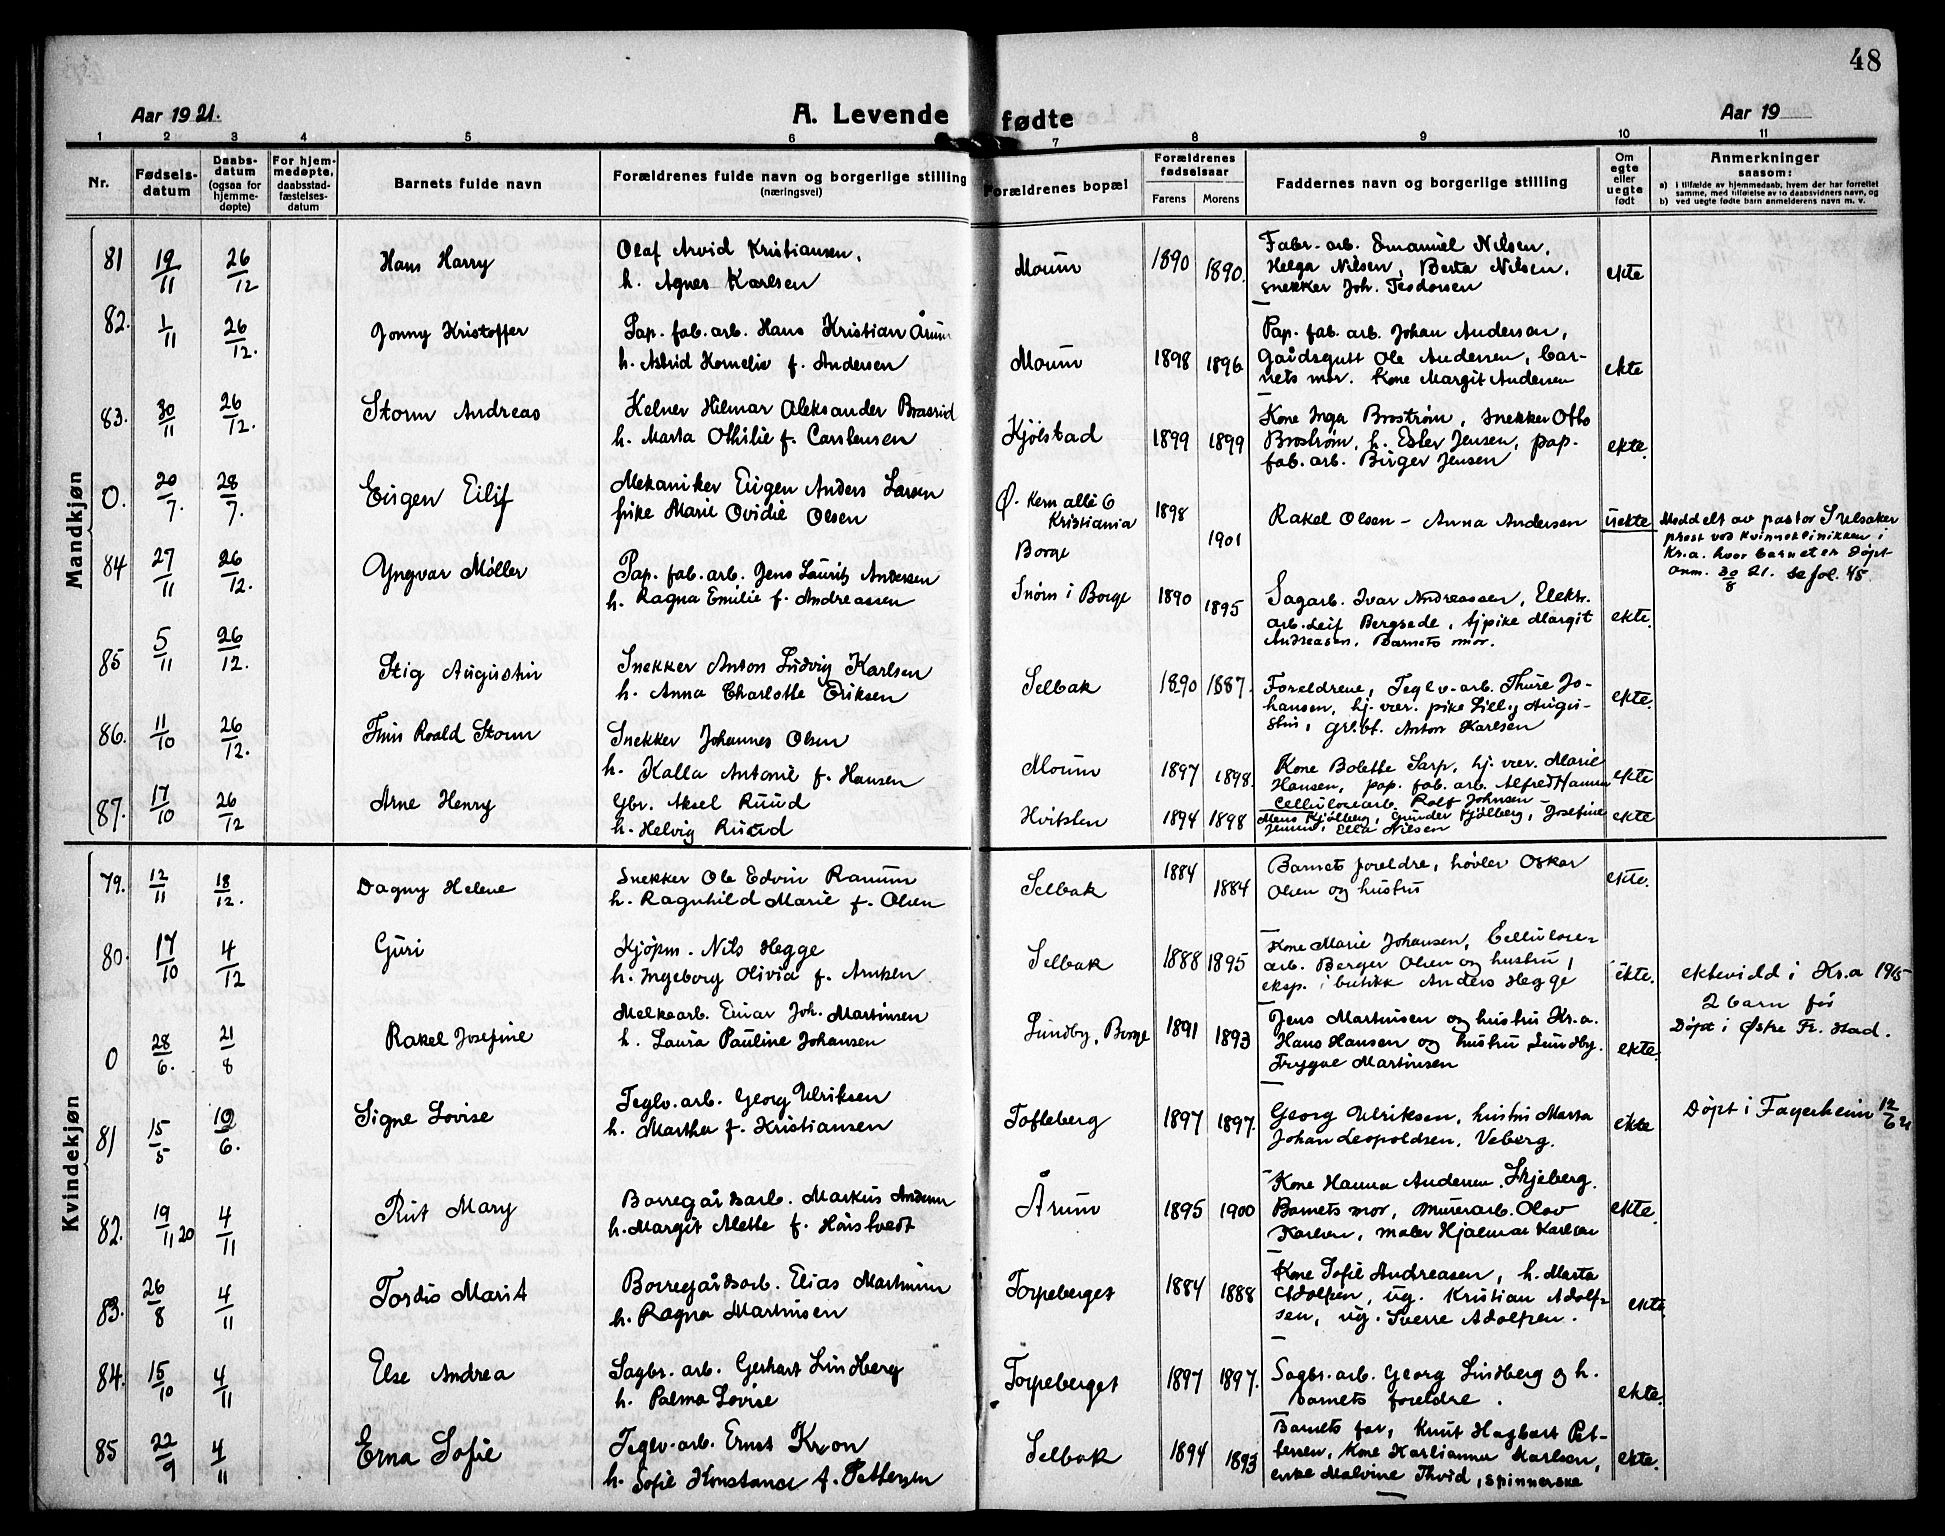 48
Aar 1921.
A. Levende fødte
Aar 19
1 2 3 4 5 6 7 8 9 10 11
Nr.
Fødsels-
datum
Daabs-
datum
(ogsaa for
hjemme-
døpte)
For hjem-
medøpte,
daabsstad-
fæstelses-
datum
Barnets fulde navn
Forældrenes fulde navn og borgerlige stilling
(næringsvei)
Forældrenes bopæl
Forældrenes
fødselsaar
Farens Morens
Faddernes navn og borgerlige stilling
Om
egte
eller
uegte
født
Anmerkninger
saasom:
a) i tilfælde av hjemmedaab, hvem der har forrettet
samme, med tilføielse av to daabsvidners navn, og
b) ved uegte fødte barn anmelderens navn m. v.
Mandkjøn
81 19/11 26/12 Hans Harry
Olaf Arvid Kristiansen,
h. Agnes Karlsen
Moum 1890 1890.
Fabr. arb. Emanuel Nilsen,
Helga Nilsen, Berta Nilsen,
snekker Joh. Teodorsen
ekte
82. 1/11 26/12. Jonny Kristoffer
Pap. fab. arb. Hans Kristian Årum
h. Astrid Kornelie f. Andersen
Moum 1898 1896.
Pap. fab. arb. Johan Andersen,
Gårdsgutt Ole Andersen, bar-
nets mor. Kone Margit Andersen
ekte
83. 30/11 26/12. Storm Andreas
Kelner Hilmar Aleksander
h. Marta Othilie f. Carstensen
Kjölstad 1899 1899
Kone Inga Broström, snekker Otto
Broström, h. Ester Jensen, pap.
fab. arb. Birger Jensen
ekte.
0. 20/7. 28/7. Eugen Eilif
Mekaniker Eugen Anders Larsen
pike Marie Ovidie Olsen
Ø. Kern alle 6
Kristiania
Borge
1898 1901
Rakel Olsen - Anna Andersen
uekte
Meddelt av pastor
prest ved kvinneklinikken i
Kr.a. hvor barnet er døpt
anm. 30/8 21. se fol. 45.
84 27/11 26/12. Yngvar Møller
Pap. fab. arb. Jens Laurits Andersen
h. Ragna Emilie f. Andreassen
i Borge 1890 1895
Sagarb. Ivar Andreassen, Elektr.
arb. Leif Bergsede, tj.pike Margit
Andreasen, Barnets mor.
ekte.
85 5/11 26/12. Stig Augustin
Snekker Anton Ludvig Karlsen
h. Anna Charlotte Eriksen
Selbak 1890 1887.
Foreldrene, Teglv. arb. Thure Jo-
hansen, hj. vær. pike Lilly Augu-
stin, gr.bt. Anton Karlsen
ekte.
86. 11/10 26/12. Finn Roald Storm
Snekker Johannes Olsen
h. Kalla Antonie f. Hansen
Moum 1897 1898.
Kone Bolette Sarp, hj. vær. Marie
Hansen, pap. fab. arb. Alfred Hansen
Cellulosearb. Rolf Johnsen
ekte
87. 17/10 26/12 Arne Henry
Gbr. Aksel Ruud
h. Helvig Ruud
Hvitsten 1894 1898
Mens Kjølberg, Gunder Kjølberg, Josefine
Jensen, Ella Nilsen
ekte
Kvindekjøn
79. 12/11 18/12. Dagny Helene
Snekker Ole Edvin Ranum
h. Ragnhild Marie f. Olsen
Selbak 1884 1884
Barnets foreldre, høvler Oskar
Olsen og hustru
ekte.
80. 17/10 4/12 Guri
Kjøpm. Nils Hegge
h. Ingeborg Olivia f. Arntzen
Selbak 1888 1895
Kone Marie Johansen, Cellulose-
arb. Berger Olsen og hustru,
eksp. i butikk Anders Hegge
ekte.
ektevidd i Kr.a 1915
2 barn før
Døpt i Østre Fr.stad.
0 28/6. 21/8 Rakel Josefine
Melkearb. Einar Joh. Martinsen
h. Laura Pauline Johansen
Lundby, Borge 1891 1893
Jens Martinsen og hustru Kr.a.
Hans Hansen og hustru, Lundby.
Trygve Martinsen
ekte.
81 15/5 19/6. Signe Lovise
Teglv. arb. Georg Ulriksen
h. Martha f. Kristiansen
Tofteberg 1897 1897.
Georg Ulriksen, hustru Marta
Johan Leopoldsen, Veberg.
ekte
Døpt i Fagerheim 12/6 21
82. 19/11 20 4/11 Rut Mary
Borregårdsarb. Markus Andersen
h. Margit Alette f. Hårstvedt
Årum 1895 1900
Kone Hanna Andersen, Skjeberg.
Barnets mor, murerarb. Olav
Karlsen, maler Hjalmar Karlsen
ekte.
83. 26/8 4/11 Tordis Marit
Borregårdsarb. Elias Martinsen
h. Ragna Martinsen
Torpeberget 1884 1888
Kone Sofie Andreasen, h. Marta
Adolfsen, ug. Kristian Adolf-
sen, ug. Sverre Adolfsen.
ekte
84. 15/10 4/11 Else Andrea
Sagbr. arb. Gerhart Lindberg
h. Palma Lovise
Torpeberget 1897 1897.
Sagbr. arb. Georg Lindberg og h.
barnets foreldre.
ekte.
85 22/9 4/11 Erna Sofie
Teglv. arb. Ernst Kroon
h. Sofie Konstanse f. Pettersen
Selbak 1894 1893
Barnets far, Knut Hagbart Pet-
tersen, Kone Karlianna Karlsen,
enke Malvine Thvid, spinnerske
ekte.